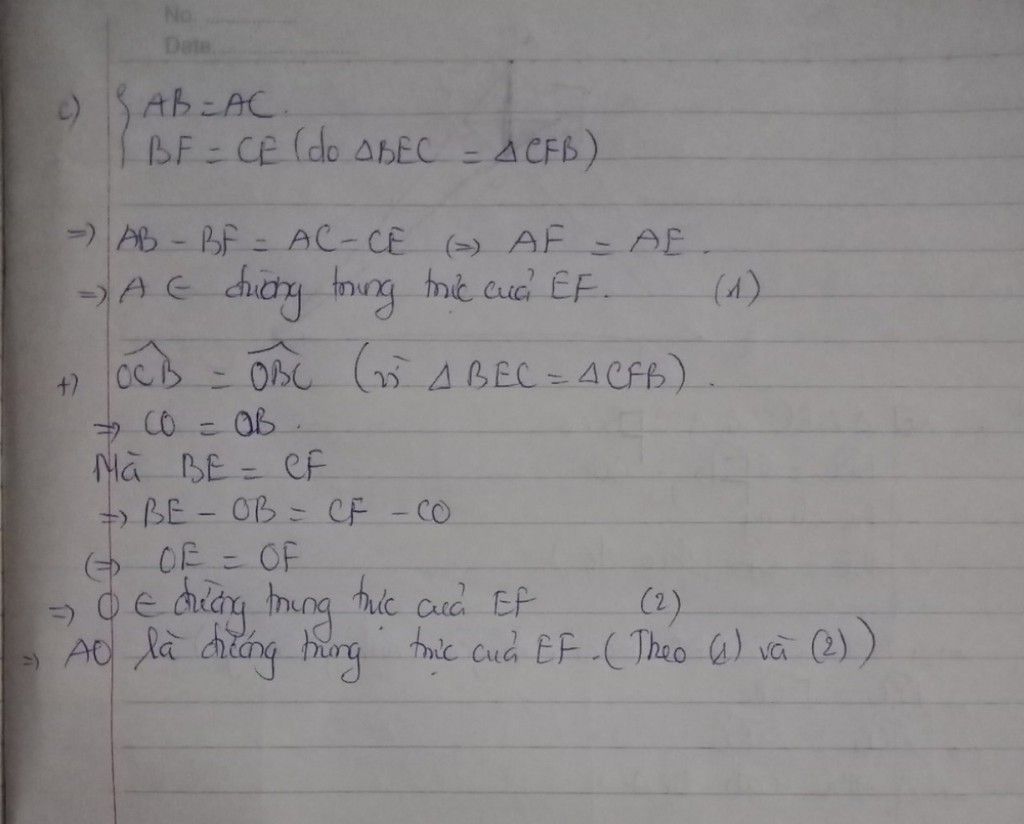 No. ....................
Date. ..............................
c) { AB = AC.
BF = CE (do ΔBEC = ΔCFB)
=> AB - BF = AC - CE (=> AF = AE.
=> A ∈ đường trung trực cuả EF. (1)
+) \widehat{OCB} = \widehat{OBC} (vì ΔBEC = ΔCFB).
=> CO = OB.
Mà BE = CF
=> BE - OB = CF - CO
(=> OE = OF
=> O ∈ đường trung trực cuả EF (2)
=> AO là đường trung trực cuả EF. (Theo (1) và (2))